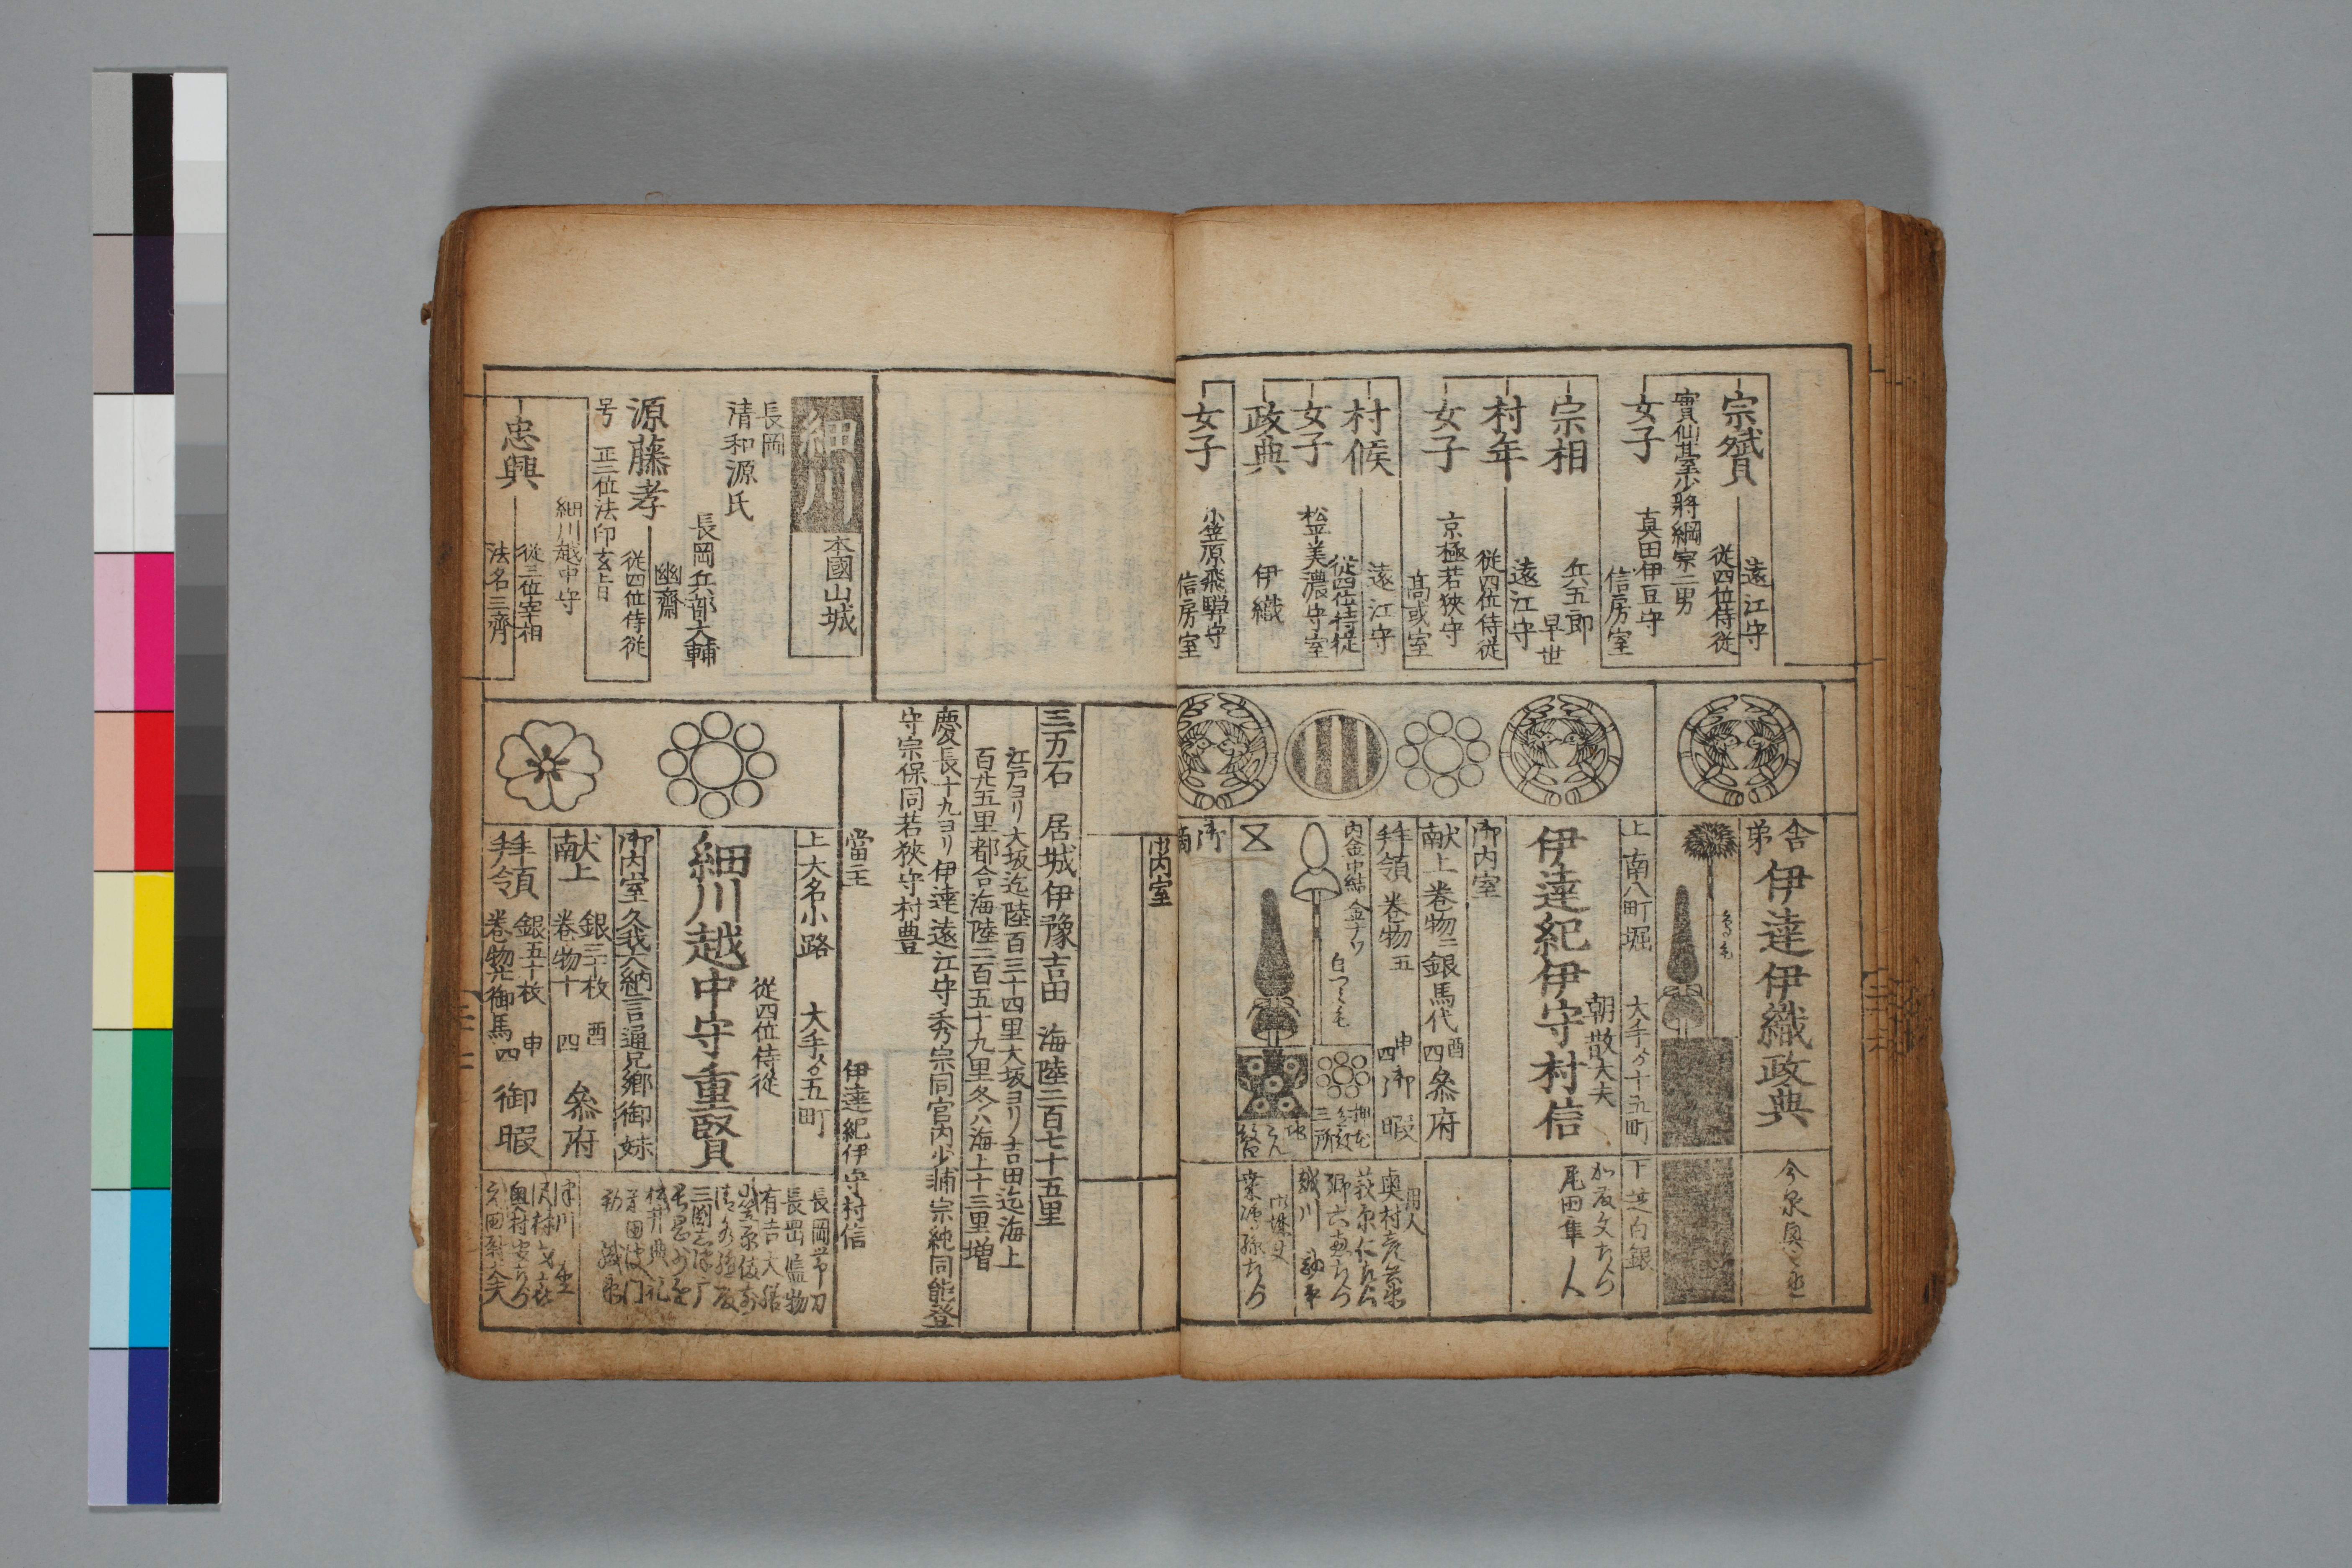 宗贇
遠江守
従四位侍従
實仙䑓少將綱宗二男
女子
真田伊豆守
信房室
宗相
兵五郎
早世
村年
遠江守
従四位侍従
女子
京極若狭守
髙或室
村候
遠江守
従四位侍従
女子
松平美濃守室
政典
伊織
女子
小笠原飛騨守
信房室
舎弟
伊達伊織政典
上南八町堀
大手ゟ十五町
下芝白銀
朝散大夫
伊達紀伊守村信
尾田隼人
御内室
献上 巻物二 銀馬代
酉四 叅府
拝領 巻物五
申四 御暇
用人
内金中結金ナワ
三所
御内室
三万石 居城伊豫吉田 海陸二百七十五里
江戸ヨリ大坂迄陸百三十四里大坂ヨリ吉田迄海上
百廿五里都合海陸二百五十九里冬ハ海上十三里増
慶長十九ヨリ伊達遠江守秀宗同宮内少輔宗純同能登
守宗保同若狭守村豊
當主
伊達紀伊守村信
細川
本國山城
長岡
清和源氏
長岡兵部大輔
幽齋
源藤孝
従四位侍従
号 正二位法印玄旨
細川越中守
忠興
従三位宰相
法名三齊
上大名小路
大手ゟ五町
従四位侍従
細川越中守重賢
御内室久我大納言通兄郷御妹
献上
銀三十枚
巻物十
酉四
叅府
拝領
銀五十枚
巻物廿御馬
申四
御暇
長岡帯刀
長岡監物
有吉大膳